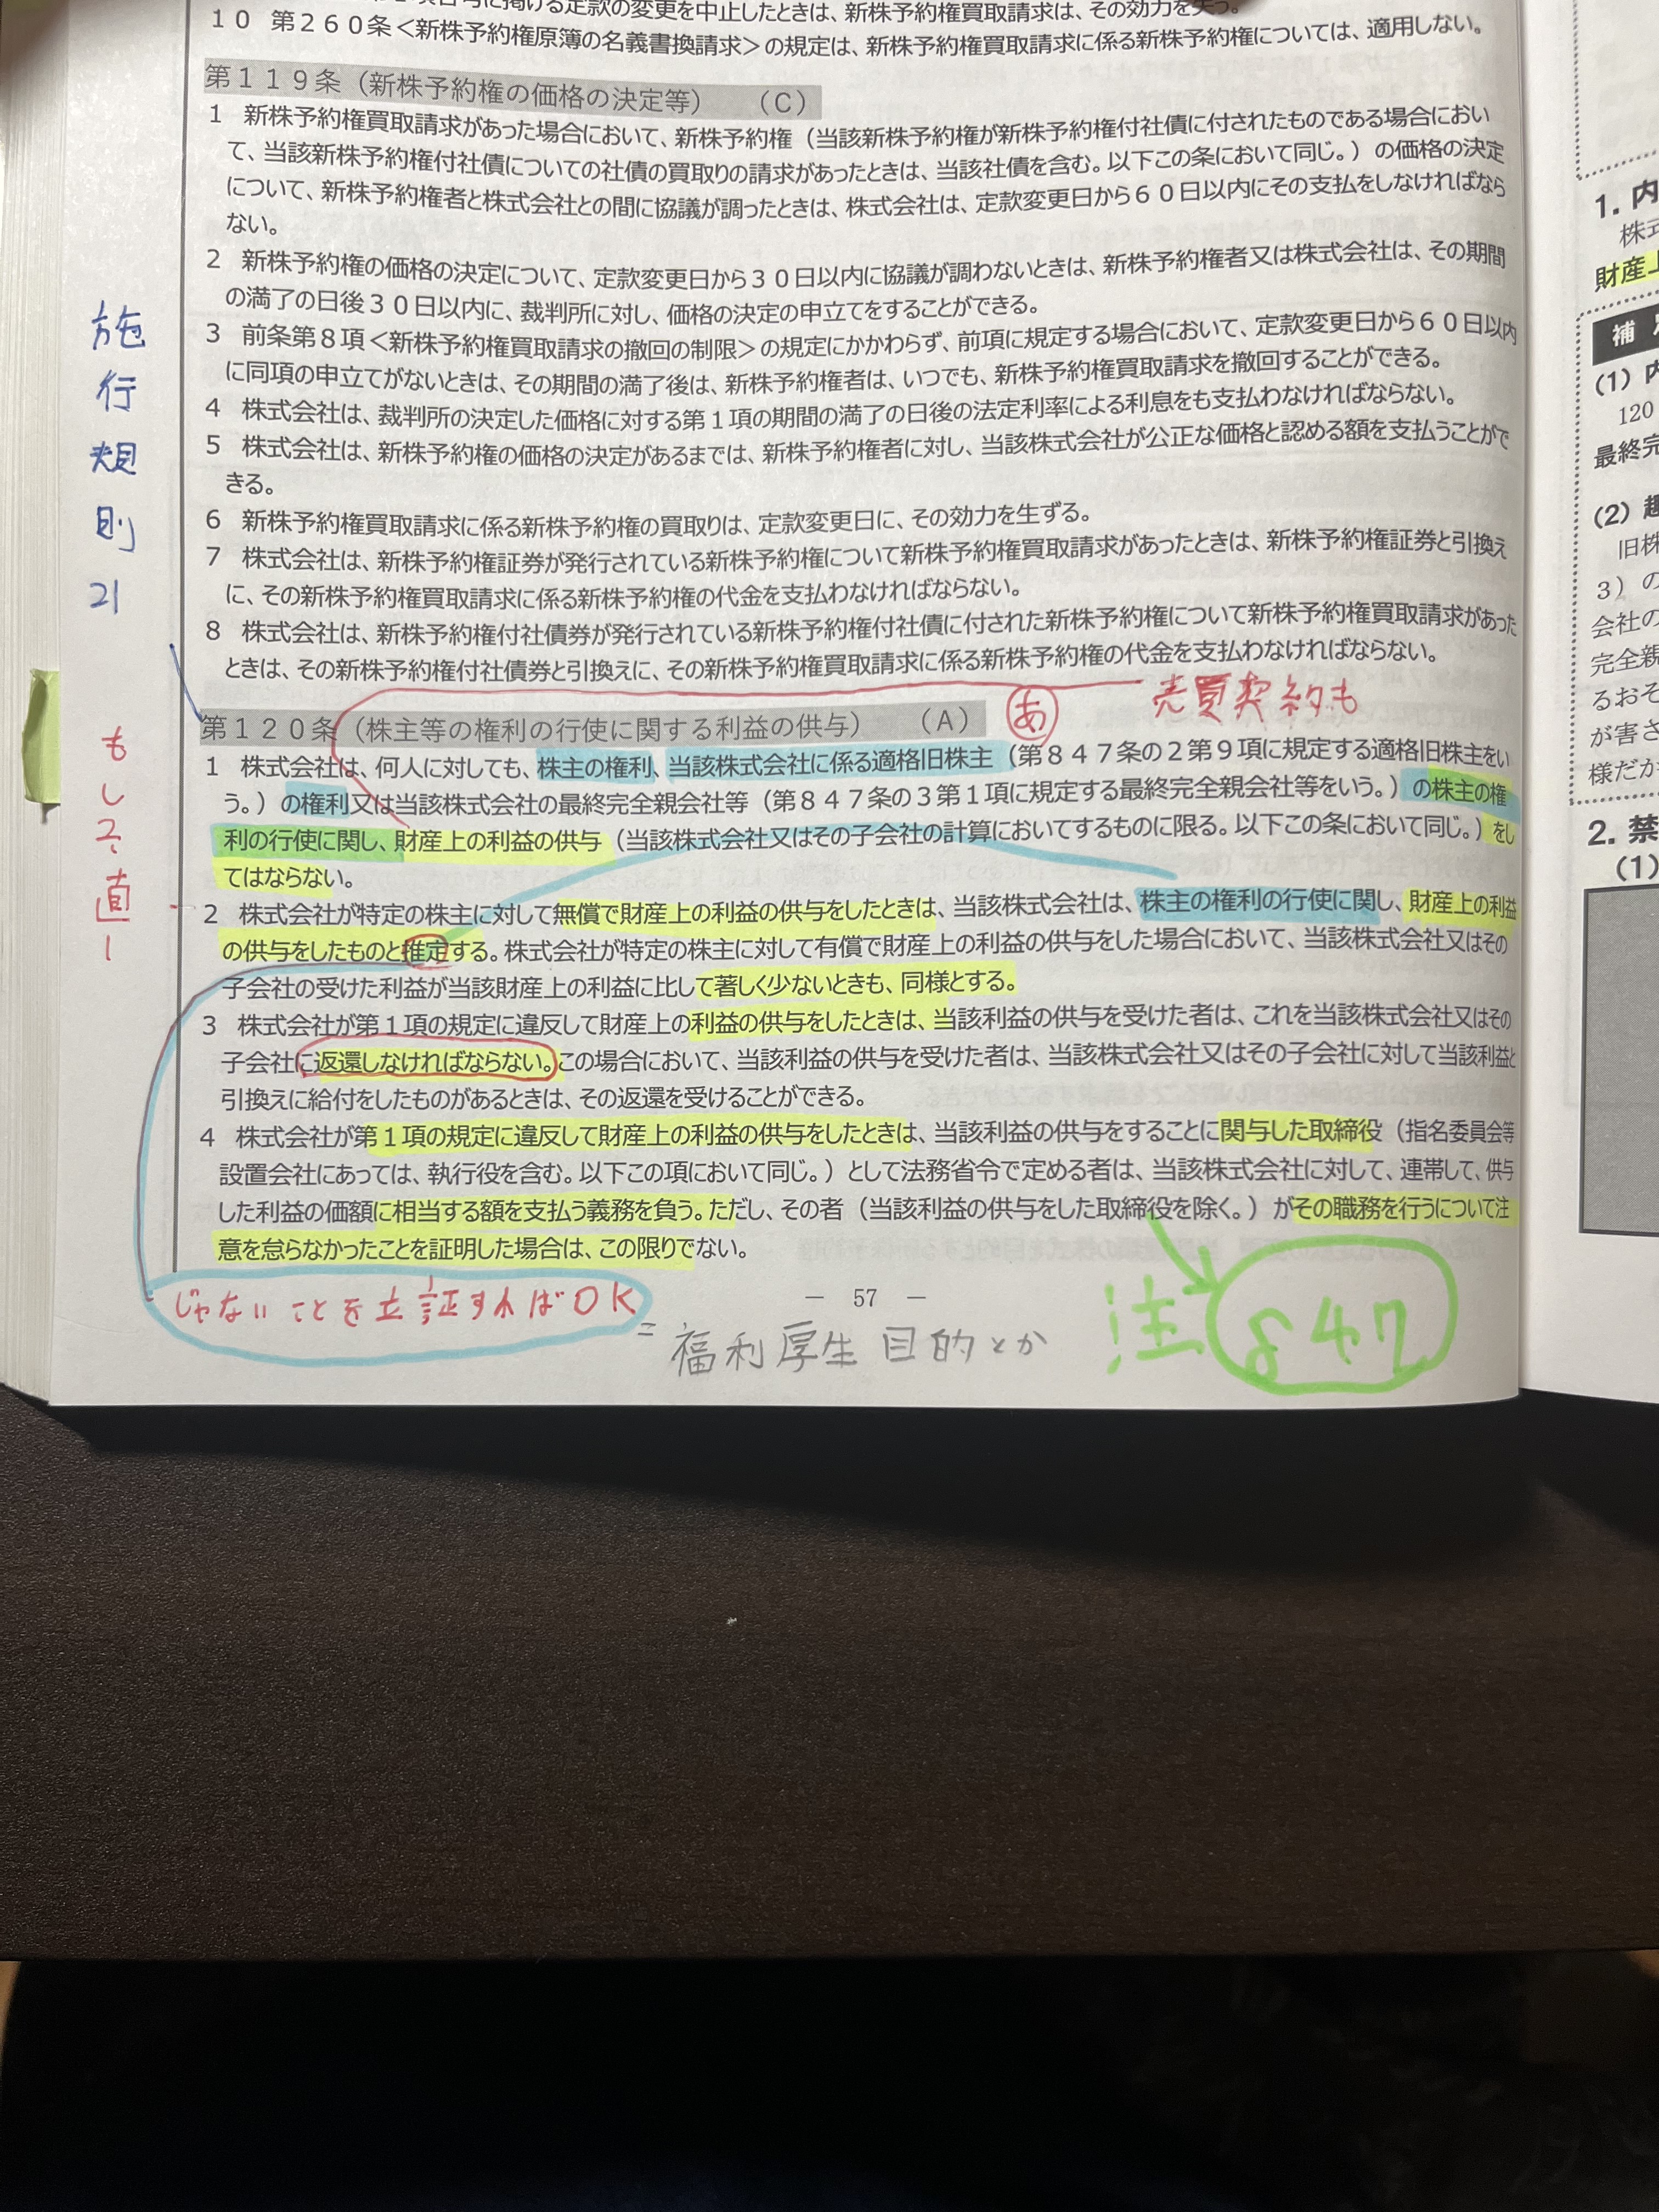 に掲げる定款の変更を中止したときは、新株予約権買取請求は、その効力を失う。
10 第260条<新株予約権原簿の名義書換請求>の規定は、新株予約権買取請求に係る新株予約権については、適用しない。
第119条(新株予約権の価格の決定等) (C)
1 新株予約権買取請求があった場合において、新株予約権(当該新株予約権が新株予約権付社債に付されたものである場合におい
て、当該新株予約権付社債についての社債の買取りの請求があったときは、当該社債を含む。以下この条において同じ。)の価格の決定
について、新株予約権者と株式会社との間に協議が調ったときは、株式会社は、定款変更日から60日以内にその支払をしなければなら
ない。
2 新株予約権の価格の決定について、定款変更日から30日以内に協議が調わないときは、新株予約権者又は株式会社は、その期間
の満了の日後30日以内に、裁判所に対し、価格の決定の申立てをすることができる。
3 前条第8項<新株予約権買取請求の撤回の制限>の規定にかかわらず、前項に規定する場合において、定款変更日から60日以内
に同項の申立てがないときは、その期間の満了後は、新株予約権者は、いつでも、新株予約権買取請求を撤回することができる。
4 株式会社は、裁判所の決定した価格に対する第1項の期間の満了の日後の法定利率による利息をも支払わなければならない。
5 株式会社は、新株予約権の価格の決定があるまでは、新株予約権者に対し、当該株式会社が公正な価格と認める額を支払うことがで
きる。
6 新株予約権買取請求に係る新株予約権の買取りは、定款変更日に、その効力を生ずる。
7 株式会社は、新株予約権証券が発行されている新株予約権について新株予約権買取請求があったときは、新株予約権証券と引換え
に、その新株予約権買取請求に係る新株予約権の代金を支払わなければならない。
8 株式会社は、新株予約権付社債券が発行されている新株予約権付社債に付された新株予約権について新株予約権買取請求があった
ときは、その新株予約権付社債券と引換えに、その新株予約権買取請求に係る新株予約権の代金を支払わなければならない。
施行規則21
売買契約も
第120条(株主等の権利の行使に関する利益の供与) (A)
あ
1 株式会社は、何人に対しても、株主の権利、当該株式会社に係る適格旧株主(第847条の2第9項に規定する適格旧株主をい
う。)の権利又は当該株式会社の最終完全親会社等(第847条の3第1項に規定する最終完全親会社等をいう。)の株主の権
利の行使に関し、財産上の利益の供与(当該株式会社又はその子会社の計算においてするものに限る。以下この条において同じ。)をし
てはならない。
2 株式会社が特定の株主に対して無償で財産上の利益の供与をしたときは、当該株式会社は、株主の権利の行使に関し、財産上の利益
の供与をしたものと推定する。株式会社が特定の株主に対して有償で財産上の利益の供与をした場合において、当該株式会社又はその
子会社の受けた利益が当該財産上の利益に比して著しく少ないときも、同様とする。
3 株式会社が第1項の規定に違反して財産上の利益の供与をしたときは、当該利益の供与を受けた者は、これを当該株式会社又はその
子会社に返還しなければならない。この場合において、当該利益の供与を受けた者は、当該株式会社又はその子会社に対して当該利益と
引換えに給付をしたものがあるときは、その返還を受けることができる。
4 株式会社が第1項の規定に違反して財産上の利益の供与をしたときは、当該利益の供与をすることに関与した取締役(指名委員会等
設置会社にあっては、執行役を含む。以下この項において同じ。)として法務省令で定める者は、当該株式会社に対して、連帯して、供与
した利益の価額に相当する額を支払う義務を負う。ただし、その者(当該利益の供与をした取締役を除く。)がその職務を行うについて注
意を怠らなかったことを証明した場合は、この限りでない。
じゃないことを立証すればOK
=福利厚生目的とか
― 57 ―
注 847
1. 内
株式
財産上
補
(1)内
120
最終完
(2)趣
旧株
3)の
会社の
完全親
るおそ
が害さ
様だか
2. 禁
(1)